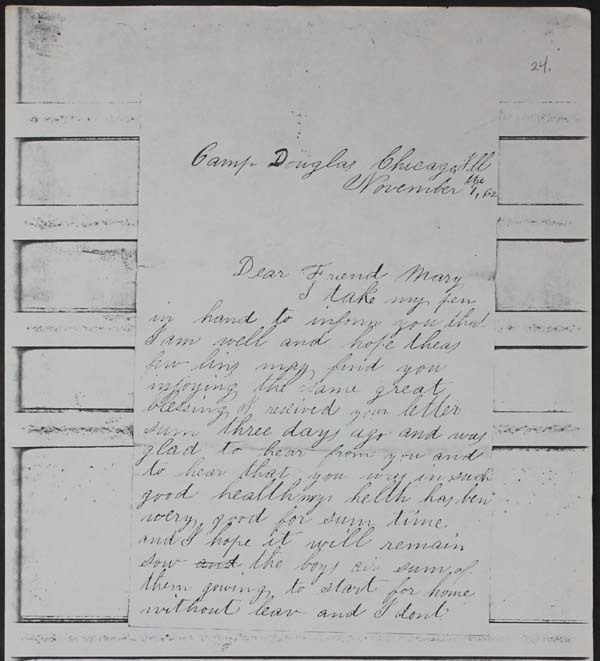 24.
Camp Douglas Chicago Ill
November the 7, 62
Dear Friend Mary
I take my pen
in hand to inform you that
I am well and hope theas
few lins may find you
injoying the same great
blessing I reseived your letter
sum three days ago and was
glad to hear from you and
to hear that you was in such
good health my helth has ben
very good for sum time.
and I hope it will remain
sow and the boys air sum of
them gowing to start for home
without leav and I dont